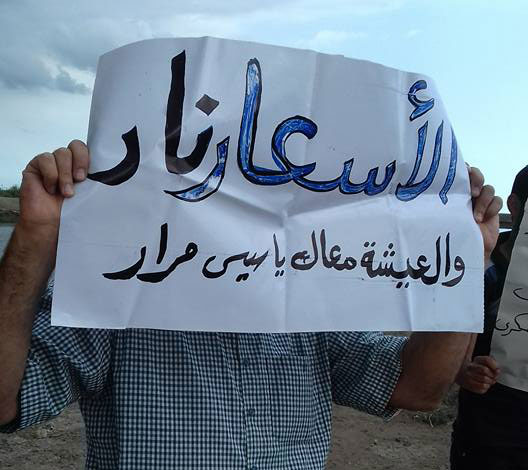 الأسعار نار
والعيشة معاك يا سيسي مرار